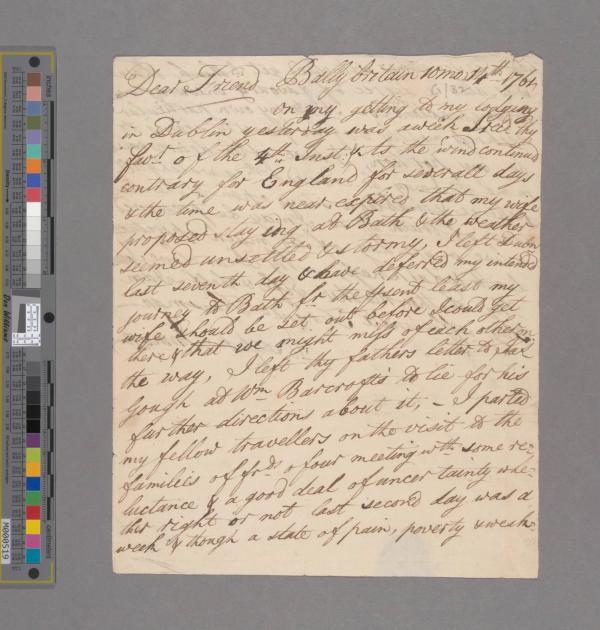 Dear Friend Bally britain 10mo: 14th 1764
on my getting to my lodging
in Dublin yesterday was a week I recd thy
favr. of the 4th Inst: & As the wind continued
contrary for England for severall days
& the time was near expired that my wife
proposed staying at Bath & the weather
seemed unsettled & stormy, I left
last seventh day & have deferred my intended
journey to Bath for the prsent least my
wife should be set out before I could get
there & that we might miss of each other in
the way, I left thy fathers letter to
Gough at Wm Barcrofts to lie for his
further directions about it, - I parted
my fellow travellers on the visit to the
families of frds. of our meeting wth. some re=
luctance & a good deal of uncertainty whe=
ther right or not last second day was a
week & though a state of pain, poverty & weak
inches
Density
Don Williams
centimeters
M000519